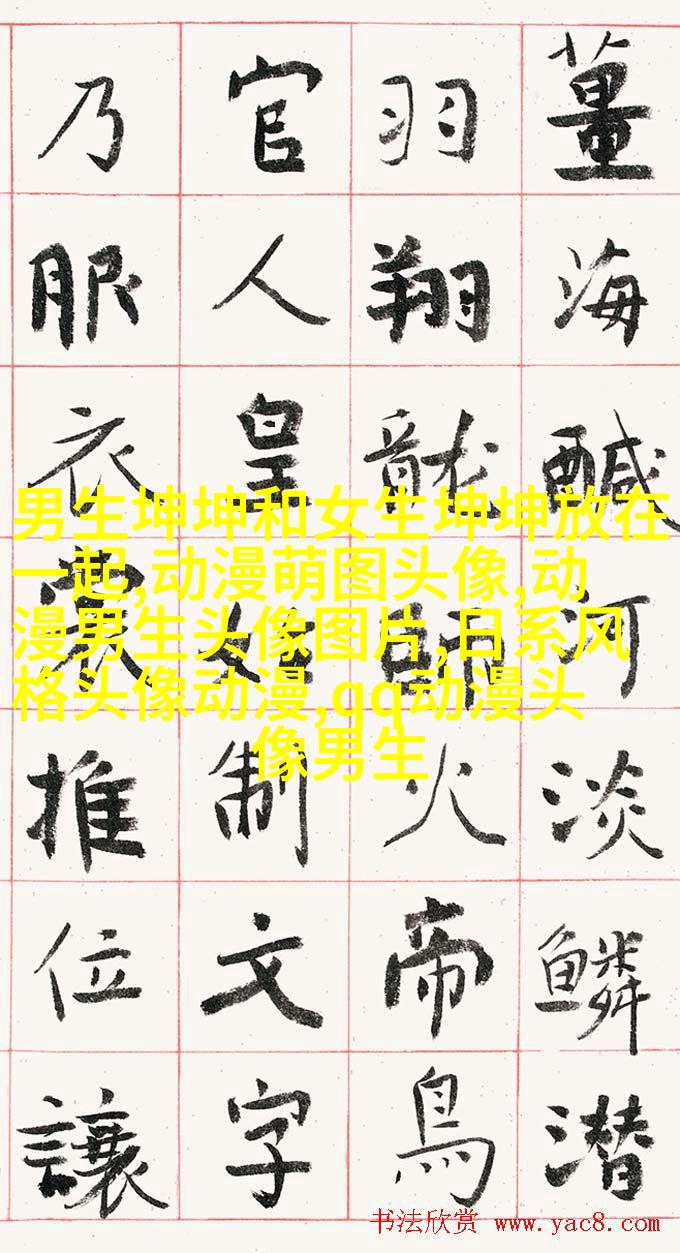 薑海醎河淡鱗潜
羽翔龍師火帝鳥
官人皇始制文字
乃服衣裳推位讓
男生坤坤和女生坤坤放在
一起,动漫萌图头像,动
漫男生头像图片,日系风
格头像动漫,qq动漫头
像男生
书法欣赏 www.yac8.com